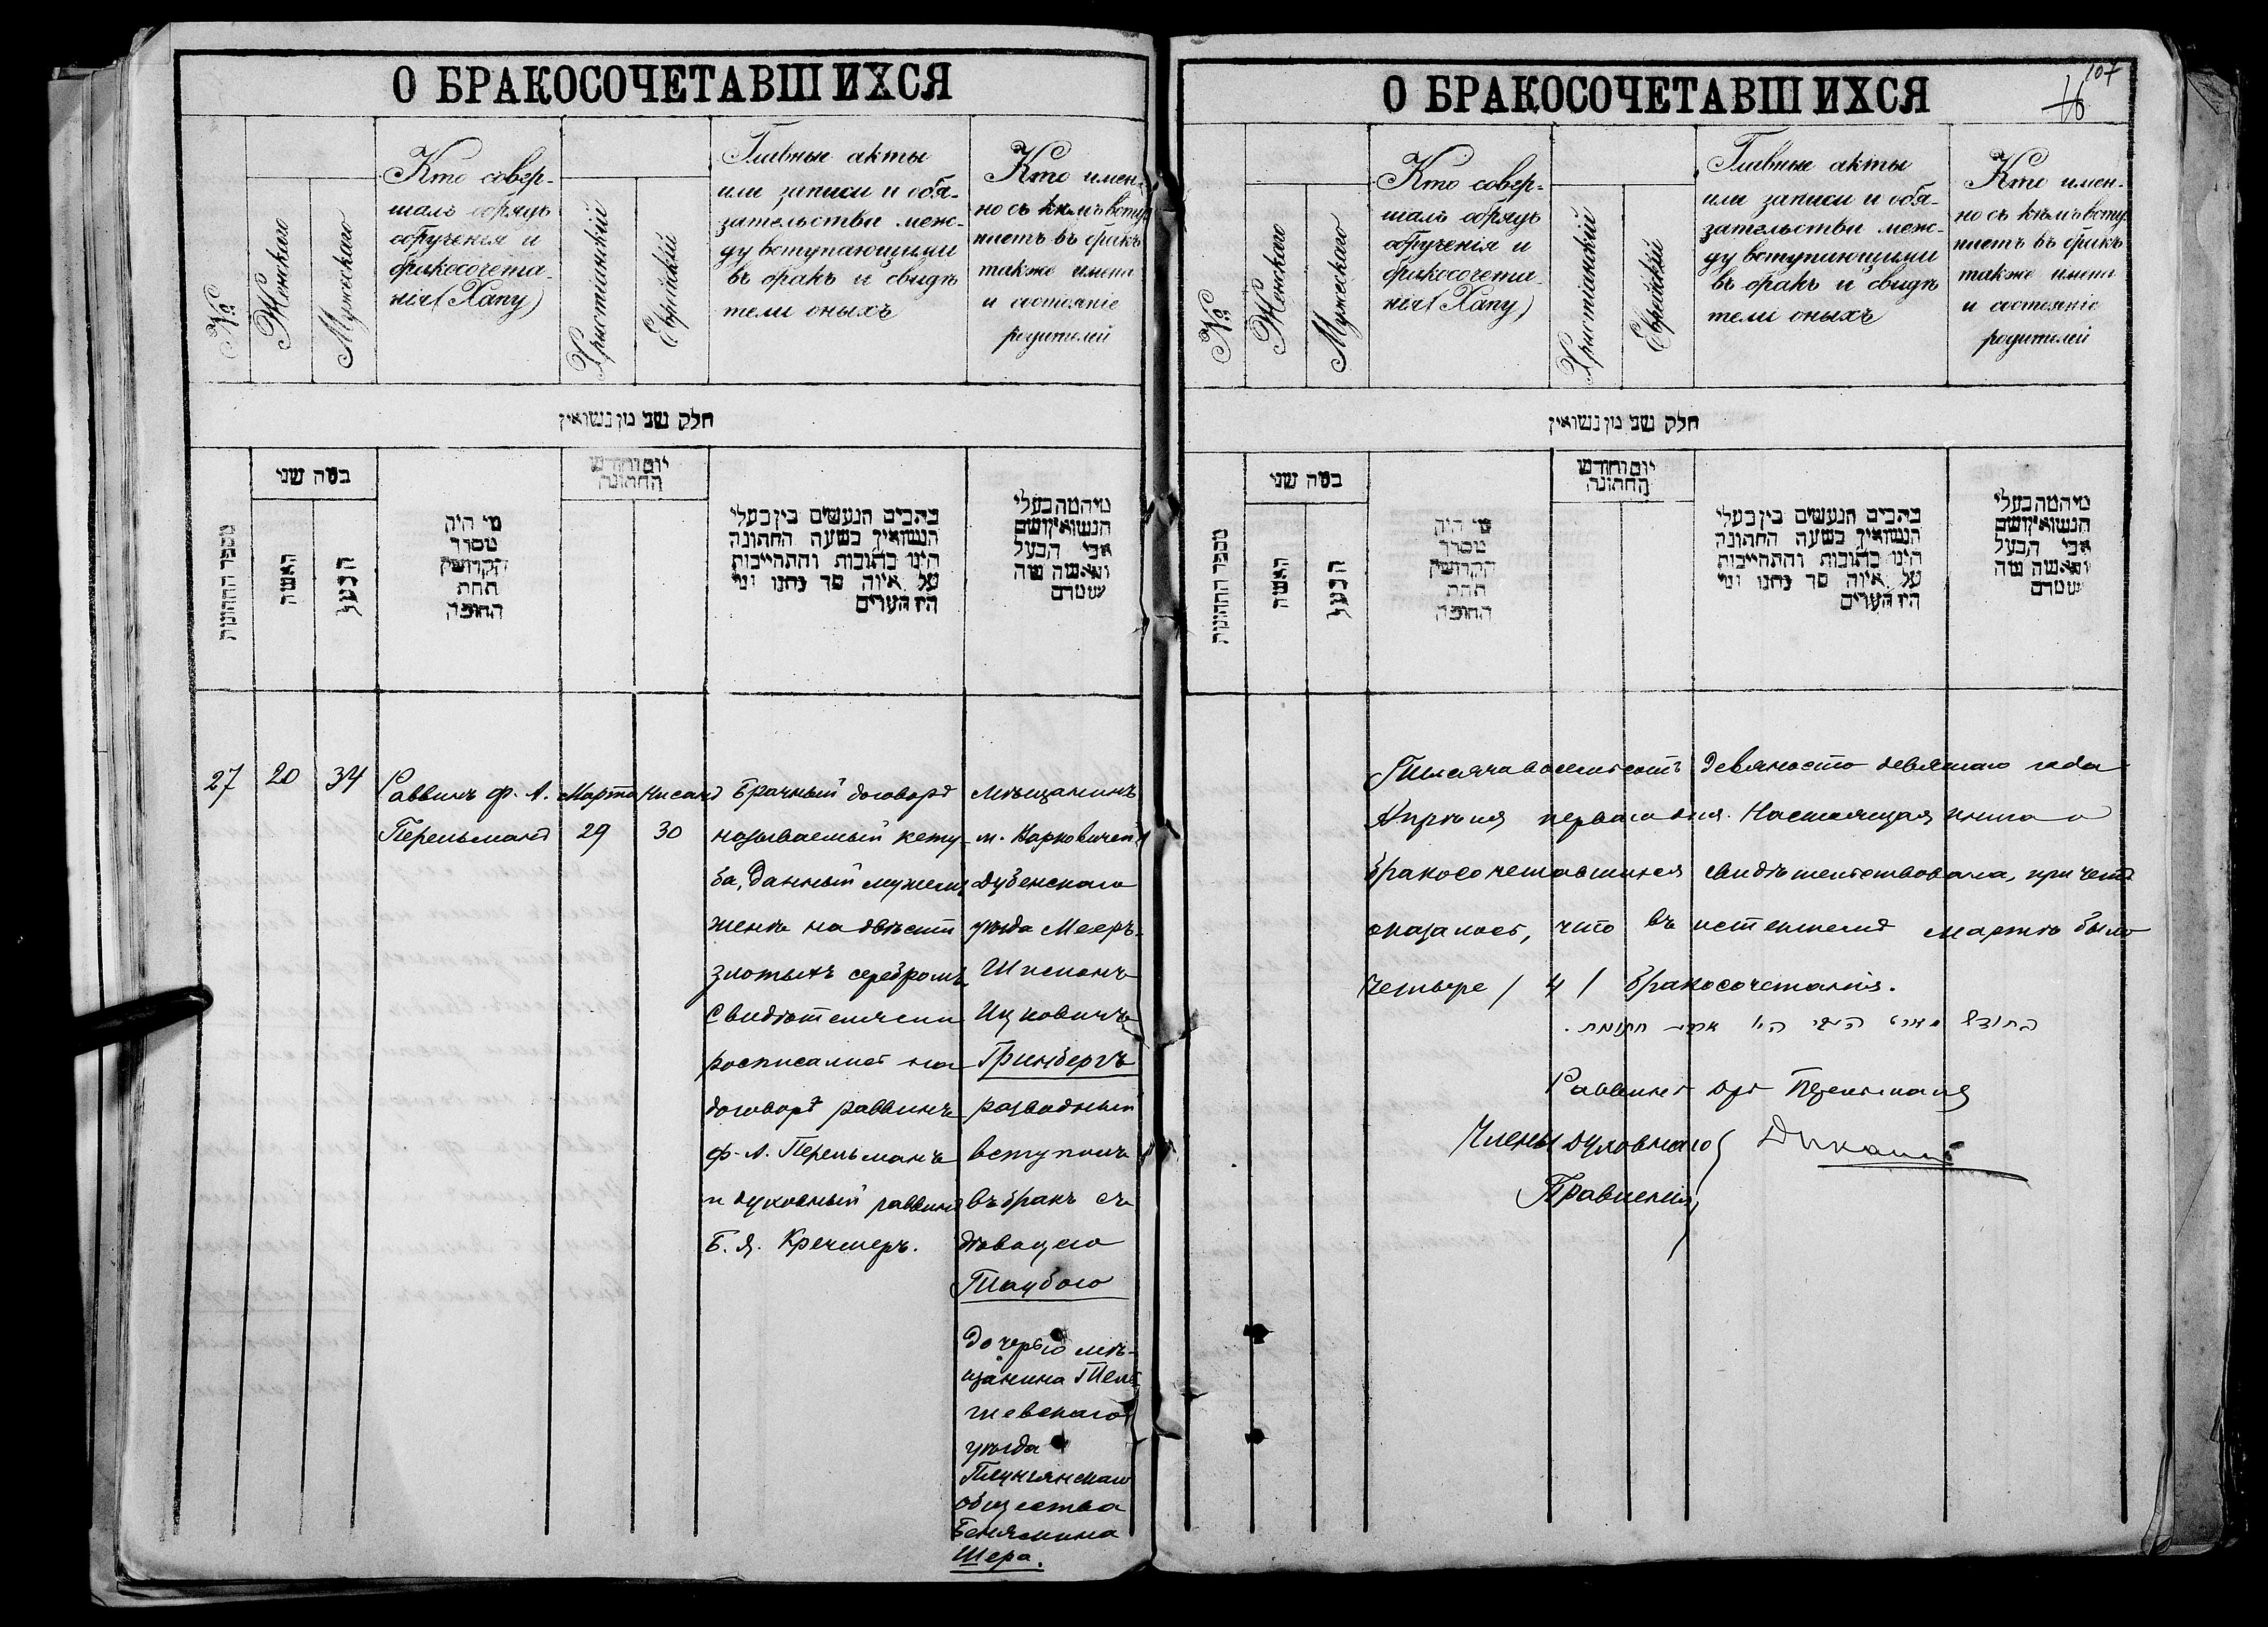 О БРАКОСОЧЕТАВШИХСЯ
№
Женскаго
Мужескаго
Кто совер-
шалъ обрядъ
обрученія и
бракосочета-
нія (Хапу)
Христіанскій
Еврейскій
Главные акты
или записи и обя-
зательства меж-
ду вступающими
въ бракъ и свидѣ
тели оныхъ
Кто имен-
но съ кѣмъ всту
паетъ въ бракъ
также имена
и состояніе
родителей
חלק שני מן נשואין
מספר החתונות
כמה שני
האשה
הבעל
מי היה
מסדר
הקדושין
תחת
החופה
יום וחודש
החתונה
כתבים הנעשים בין בעלי
הנשואין בשעה החתונה
היינו כתובות והתחייבות
על איזה סך נתנו ומי
היו העדים
מי המה בעלי
הנשואין ושם
אבי הבעל
והאשה
27
20
34
Раввинъ Ф. А.
Перельманъ
Марта
29
Нисанъ
30
Брачный договоръ
называемый кету-
ба, данный мужемъ
женѣ на двѣсти
злотыхъ серебромъ
Свидѣтелями
росписались на
договорѣ раввинъ
Ф. А. Перельманъ
и духовный раввинъ
Б. Я. Кречмеръ.
Мѣщанинъ
м. Варковичей
Дубенскаго
уѣзда Мееръ-
Шисманъ
Ицковичъ
Гринбергъ
разводный
вступилъ
въ бракъ съ
дѣвицею
Таубою
дочерью мѣ-
щанина Тель-
шевскаго
уѣзда
Плунгянскаго
общества
Беньямина
Шера.
О БРАКОСОЧЕТАВШИХСЯ
107
16
№
Женскаго
Мужескаго
Кто совер-
шалъ обрядъ
обрученія и
бракосочета-
нія (Хапу)
Христіанскій
Еврейскій
Главные акты
или записи и обя-
зательства меж-
ду вступающими
въ бракъ и свидѣ
тели оныхъ
Кто имен-
но съ кѣмъ всту
паетъ въ бракъ
также имена
и состояніе
родителей
חלק שני מן נשואין
מספר החתונות
כמה שני
האשה
הבעל
מי היה
מסדר
הקדושין
תחת
החופה
יום וחודש
החתונה
כתבים הנעשים בין בעלי
הנשואין בשעה החתונה
היינו כתובות והתחייבות
על איזה סך נתנו ומי
היו העדים
מי המה בעלי
הנשואין ושם
אבי הבעל
והאשה
Тысяча восемьсотъ девяносто девятаго года
Апрѣля перваго дня. Настоящая книга о
бракосочетавшихся свидѣтельствована, при чемъ
оказалось, что въ истекшемъ мартѣ было
четыре / 4 / бракосочетанія.
Раввинъ Ф. А. Перельманъ
Члены Духовнаго
Правленія